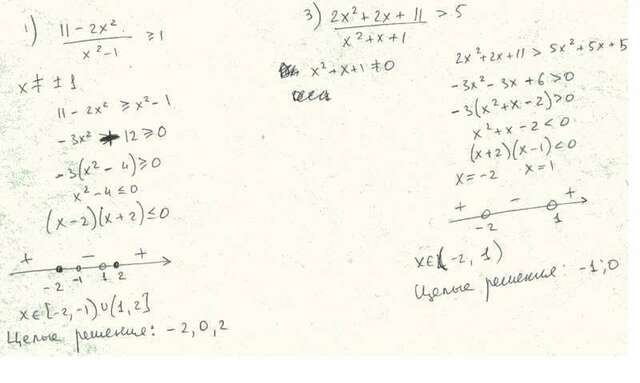 1) (11 - 2x²)/(x² - 1) ≥ 1
x ≠ ± 1
11 - 2x² ≥ x² - 1
-3x² + 12 ≥ 0
-3(x² - 4) ≥ 0
x² - 4 ≤ 0
(x-2)(x+2) ≤ 0
+ - +
-2 -1 1 2
x ∈ [-2, -1) ∪ (1, 2]
Целые решение: -2, 0, 2
3) (2x² + 2x + 11)/(x² + x + 1) > 5
x² + x + 1 ≠ 0
2x² + 2x + 11 > 5x² + 5x + 5
-3x² - 3x + 6 > 0
-3(x² + x - 2) > 0
x² + x - 2 < 0
(x+2)(x-1) < 0
x = -2 x = 1
+ - +
-2 1
x ∈ (-2, 1)
Целые решение: -1; 0